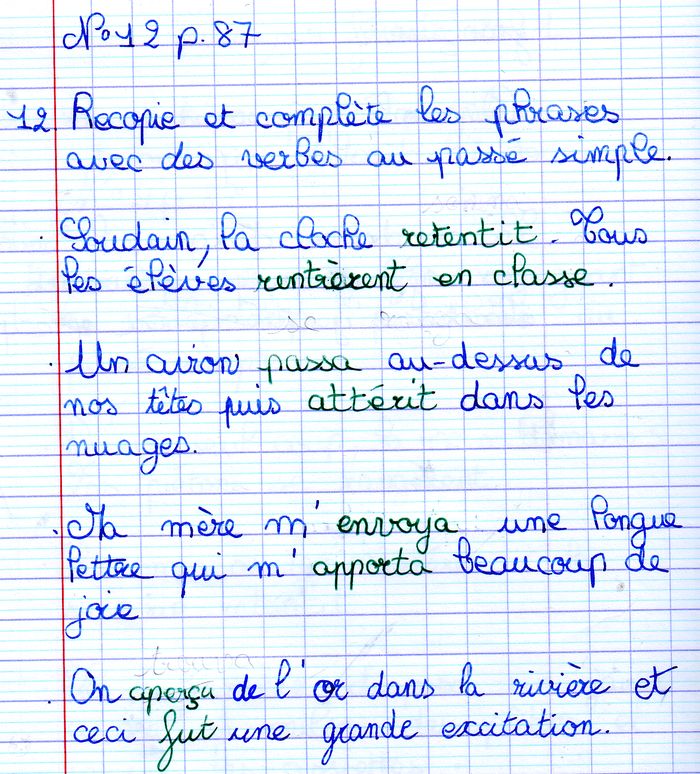 N° 12 p. 87
12 Recopie et complète les phrases
avec des verbes au passé simple.
. Soudain, la cloche retentit. Tous
les élèves rentrèrent en classe.
. Un avion passa au-dessus de
nos têtes puis attérit dans les
nuages.
. Ma mère m'envoya une longue
lettre qui m'apporta beaucoup de
joie
. On aperçu de l'or dans la rivière et
ceci fut une grande excitation.